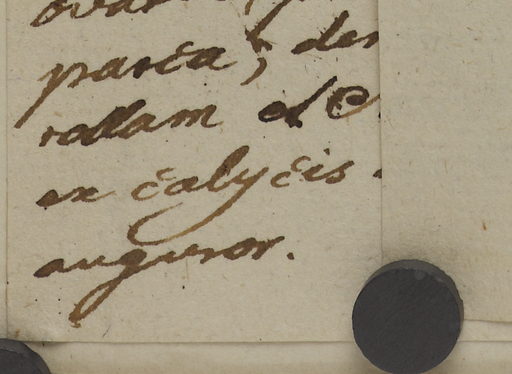 parca; des
rollam et C
ex calycis
auguror.